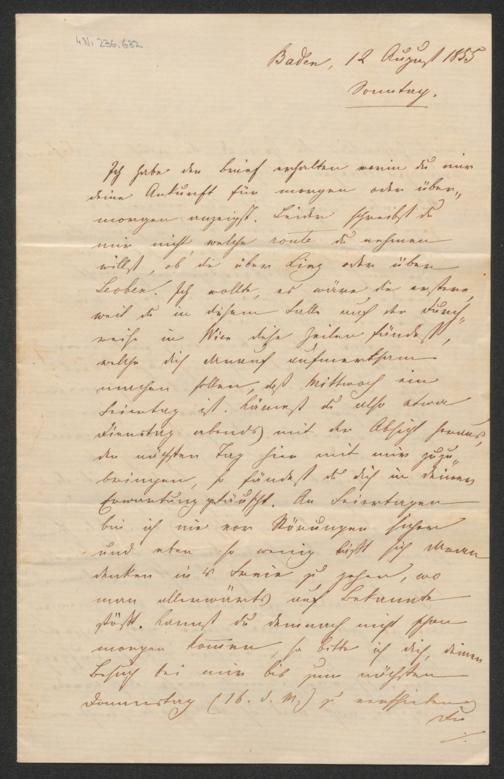 Baden, 12 August 1855
Sonntag.
Ich habe den Brief erhalten worin du mir
deine Ankunft für morgen oder über-
morgen anzeigst. Leider schreibst du
mir nicht welche route du nehmen
willst, ob die über Linz oder über
Leoben. Ich wollte, es wäre die erstere,
weil du in diesem Falle auf der Durch-
reise in Wien diese Zeilen fändest,
welche dich darauf aufmerksam
machen sollen, daß Mittwoch ein
Feiertag ist. Kämest du also etwa
Dienstag abends mit der Absicht heraus,
den nächsten Tag hier mit mir zuzu-
bringen, so fändest du dich in deinen
Erwartungen getäuscht. An Feiertagen
bin ich nie vor Störungen sicher
und eben so wenig läßt sich daran
denken in's Freie zu gehen, wo
man allerwärts auf Bekannte
stößt. Kannst du demnach nicht schon
morgen kommen, so bitte ich dich, deinen
Besuch bei mir bis zum nächsten
Donnerstag (16. d. M.) zu verschieben